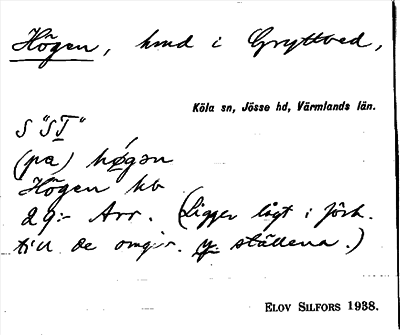 Högen, hmd i Gryttved,
Köla sn, Jösse hd, Värmlands län.
S "SI"
(på) høgən
Högen hb
29:- Arr. (Ligger lågt i förh.
till de omgiv. ställena.)
ELOV SILFORS 1938.